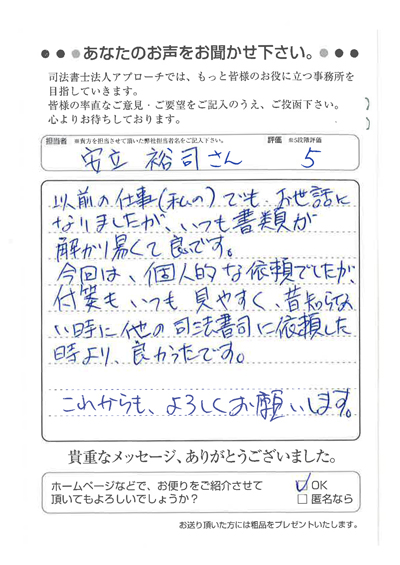 ●●●あなたのお声をお聞かせ下さい。●●●
司法書士法人アプローチでは、もっと皆様のお役に立つ事務所を
目指していきます。
皆様の率直なご意見・ご要望をご記入のうえ、ご投函下さい。
心よりお待ちしております。
担当者 ※貴方を担当させて頂いた弊社担当者名をご記入下さい。 評価 ※5段階評価
安立 裕司さん 5
以前の仕事(私の)でも お世話に
なりましたが、いつも書類が
解かり易くて良です。
今回は、個人的な依頼でしたが、
付箋もいつも見やすく、昔知らな
い時に他の司法書司に依頼した
時より、良かったです。
これからも、よろしくお願いします。
貴重なメッセージ、ありがとうございました。
ホームページなどで、お便りをご紹介させて
頂いてもよろしいでしょうか?
☑ OK
□ 匿名なら
お送り頂いた方には粗品をプレゼントいたします。